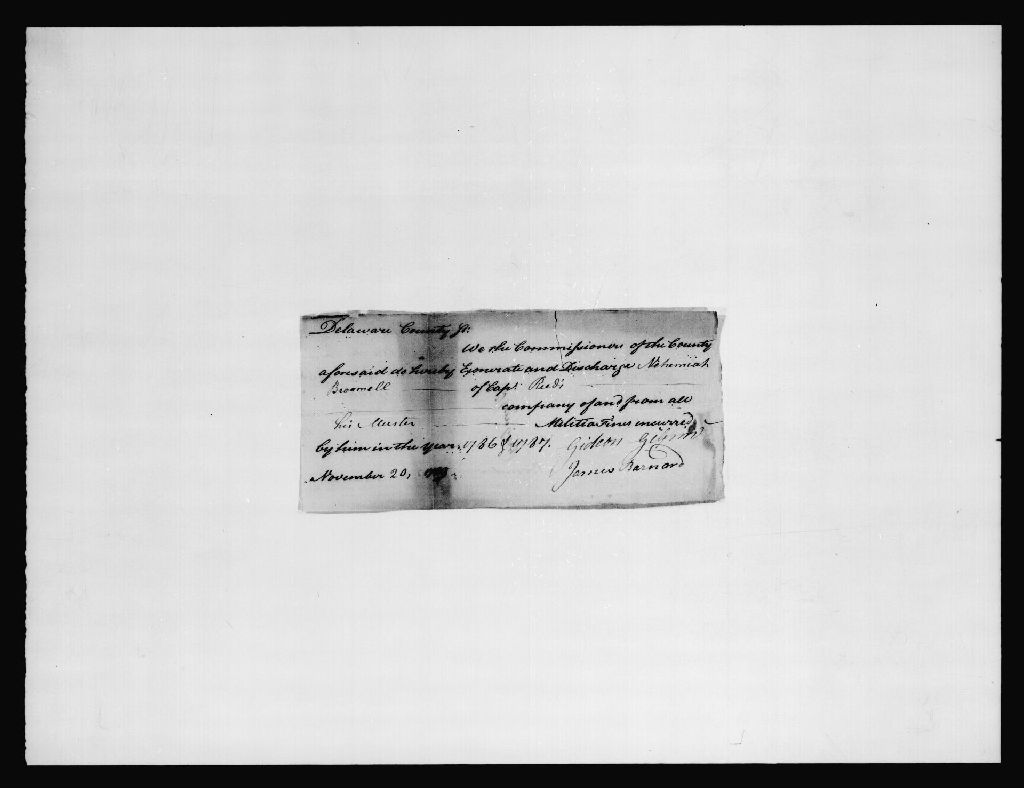 Delaware County, ss:
We the Commissioners of the County
aforesaid do hereby Exonerate and Discharge Nehemiah
Broomell of Capt Reed's
company of and from all
his Muster Militia Fines incurred
by him in the year 1786 & 1787.
Gideon
November 20,
James Barnard